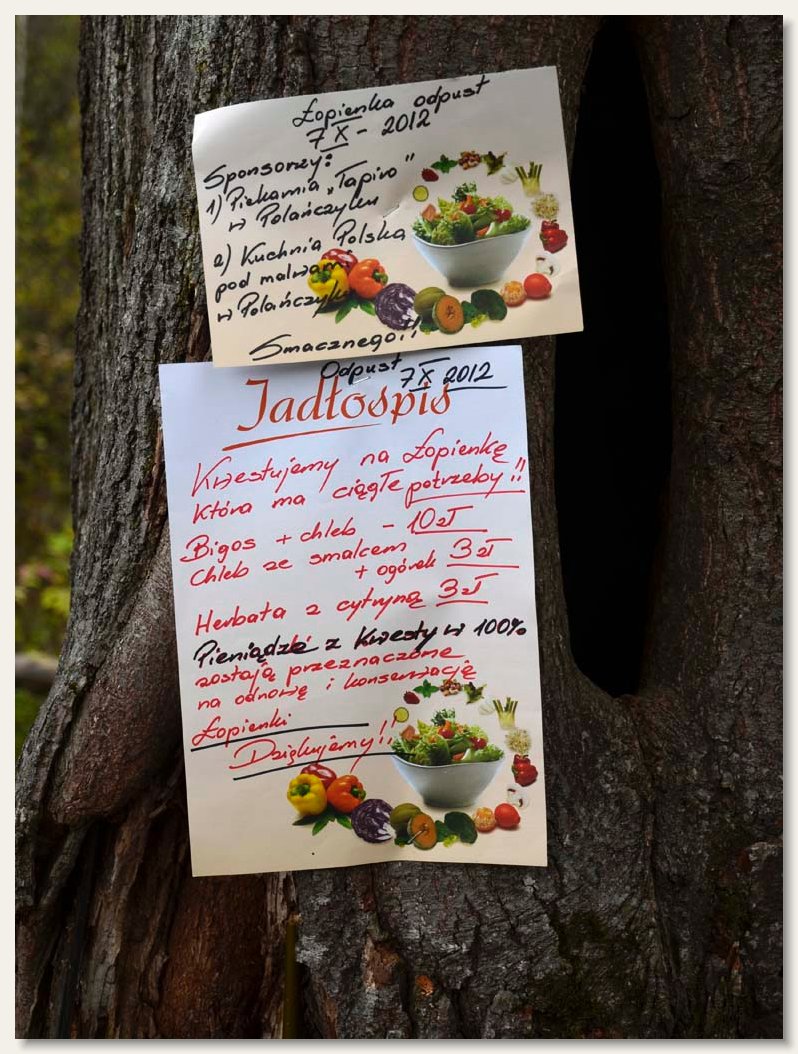 Łopienka odpust
7 X - 2012
Sponsorzy:
1) Piekarnia „Tapiro"
w Polańczyku
2) Kuchnia Polska
pod malwami
w Polańczyku
Smacznego!!
Odpust 7 X 2012
Jadłospis
Kwestujemy na Łopienkę
która ma ciągłe potrzeby!!
Bigos + chleb - 10 zł
Chleb ze smalcem
+ ogórek 3 zł
Herbata z cytryną 3 zł
Pieniądze z Kwesty w 100%
zostają przeznaczone
na odnowę i konserwację
Łopienki
Dziękujemy!!